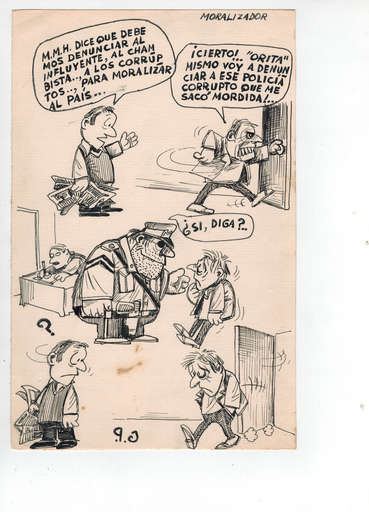 MORALIZADOR
M.M.H. DICE QUE DEBE
MOS DENUNCIAR AL
INFLUYENTE, AL CHAM
BISTA.., A LOS CORRUP
TOS.., PARA MORALIZAR
AL PAÍS...
¡CIERTO!... "ORITA"
MISMO VOY A DENUN
CIAR A ESE POLICÍA
CORRUPTO QUE ME
SACÓ MORDIDA!...
¿SI, DIGA?..
?